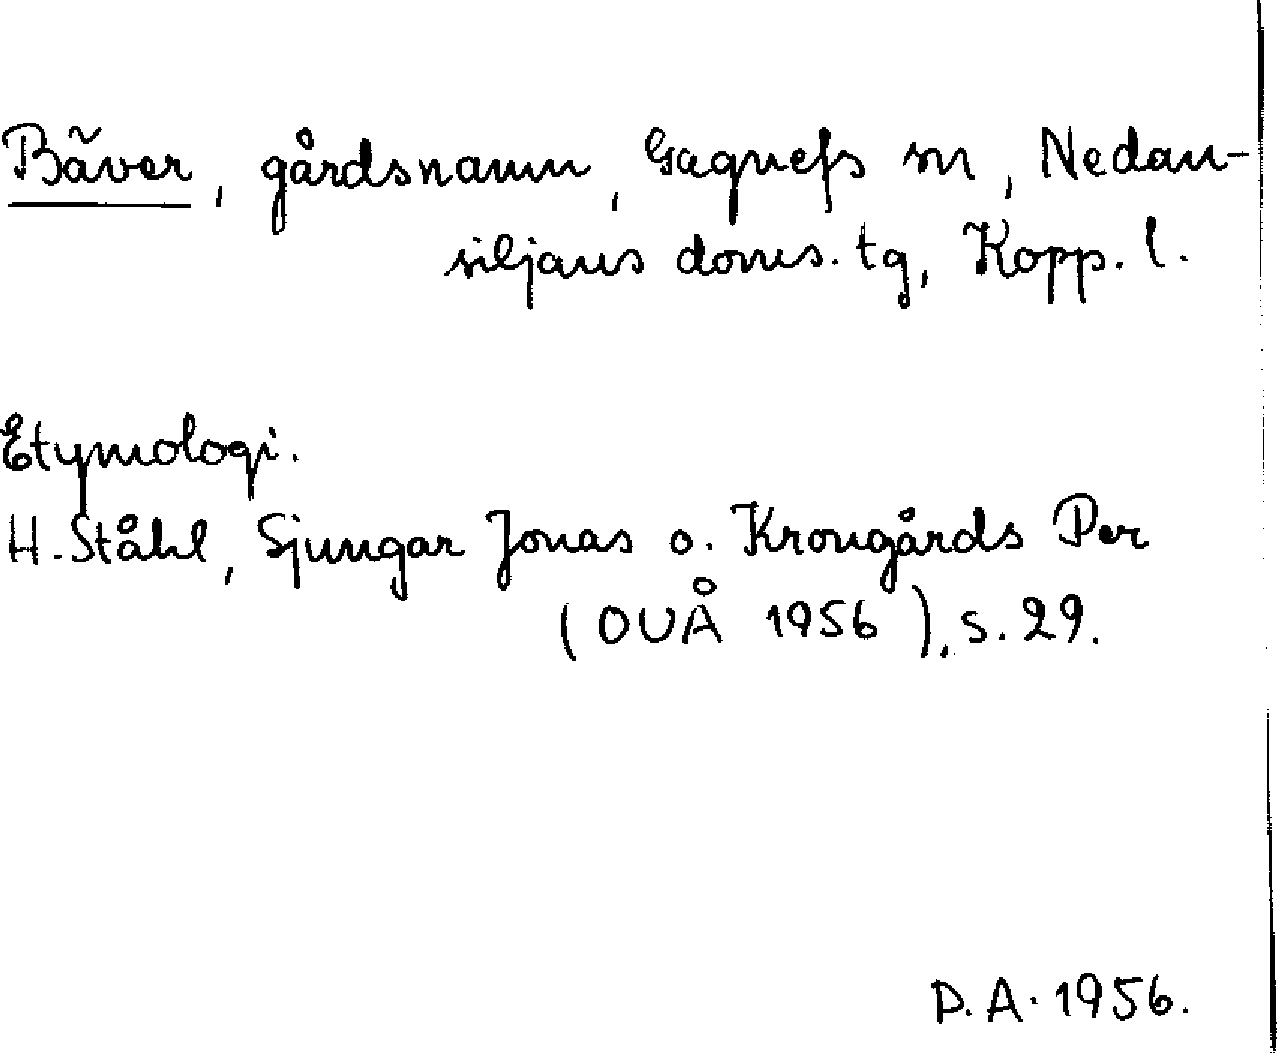 Bäver, gårdsnamn, Gagnefs sn, Nedan-
siljans doms. tg, Kopp. l.
Etymologi.
H. Ståhl, Sjungar Jonas o. Krongårds Per
(OUÅ 1956), s. 29.
D. A. 1956.